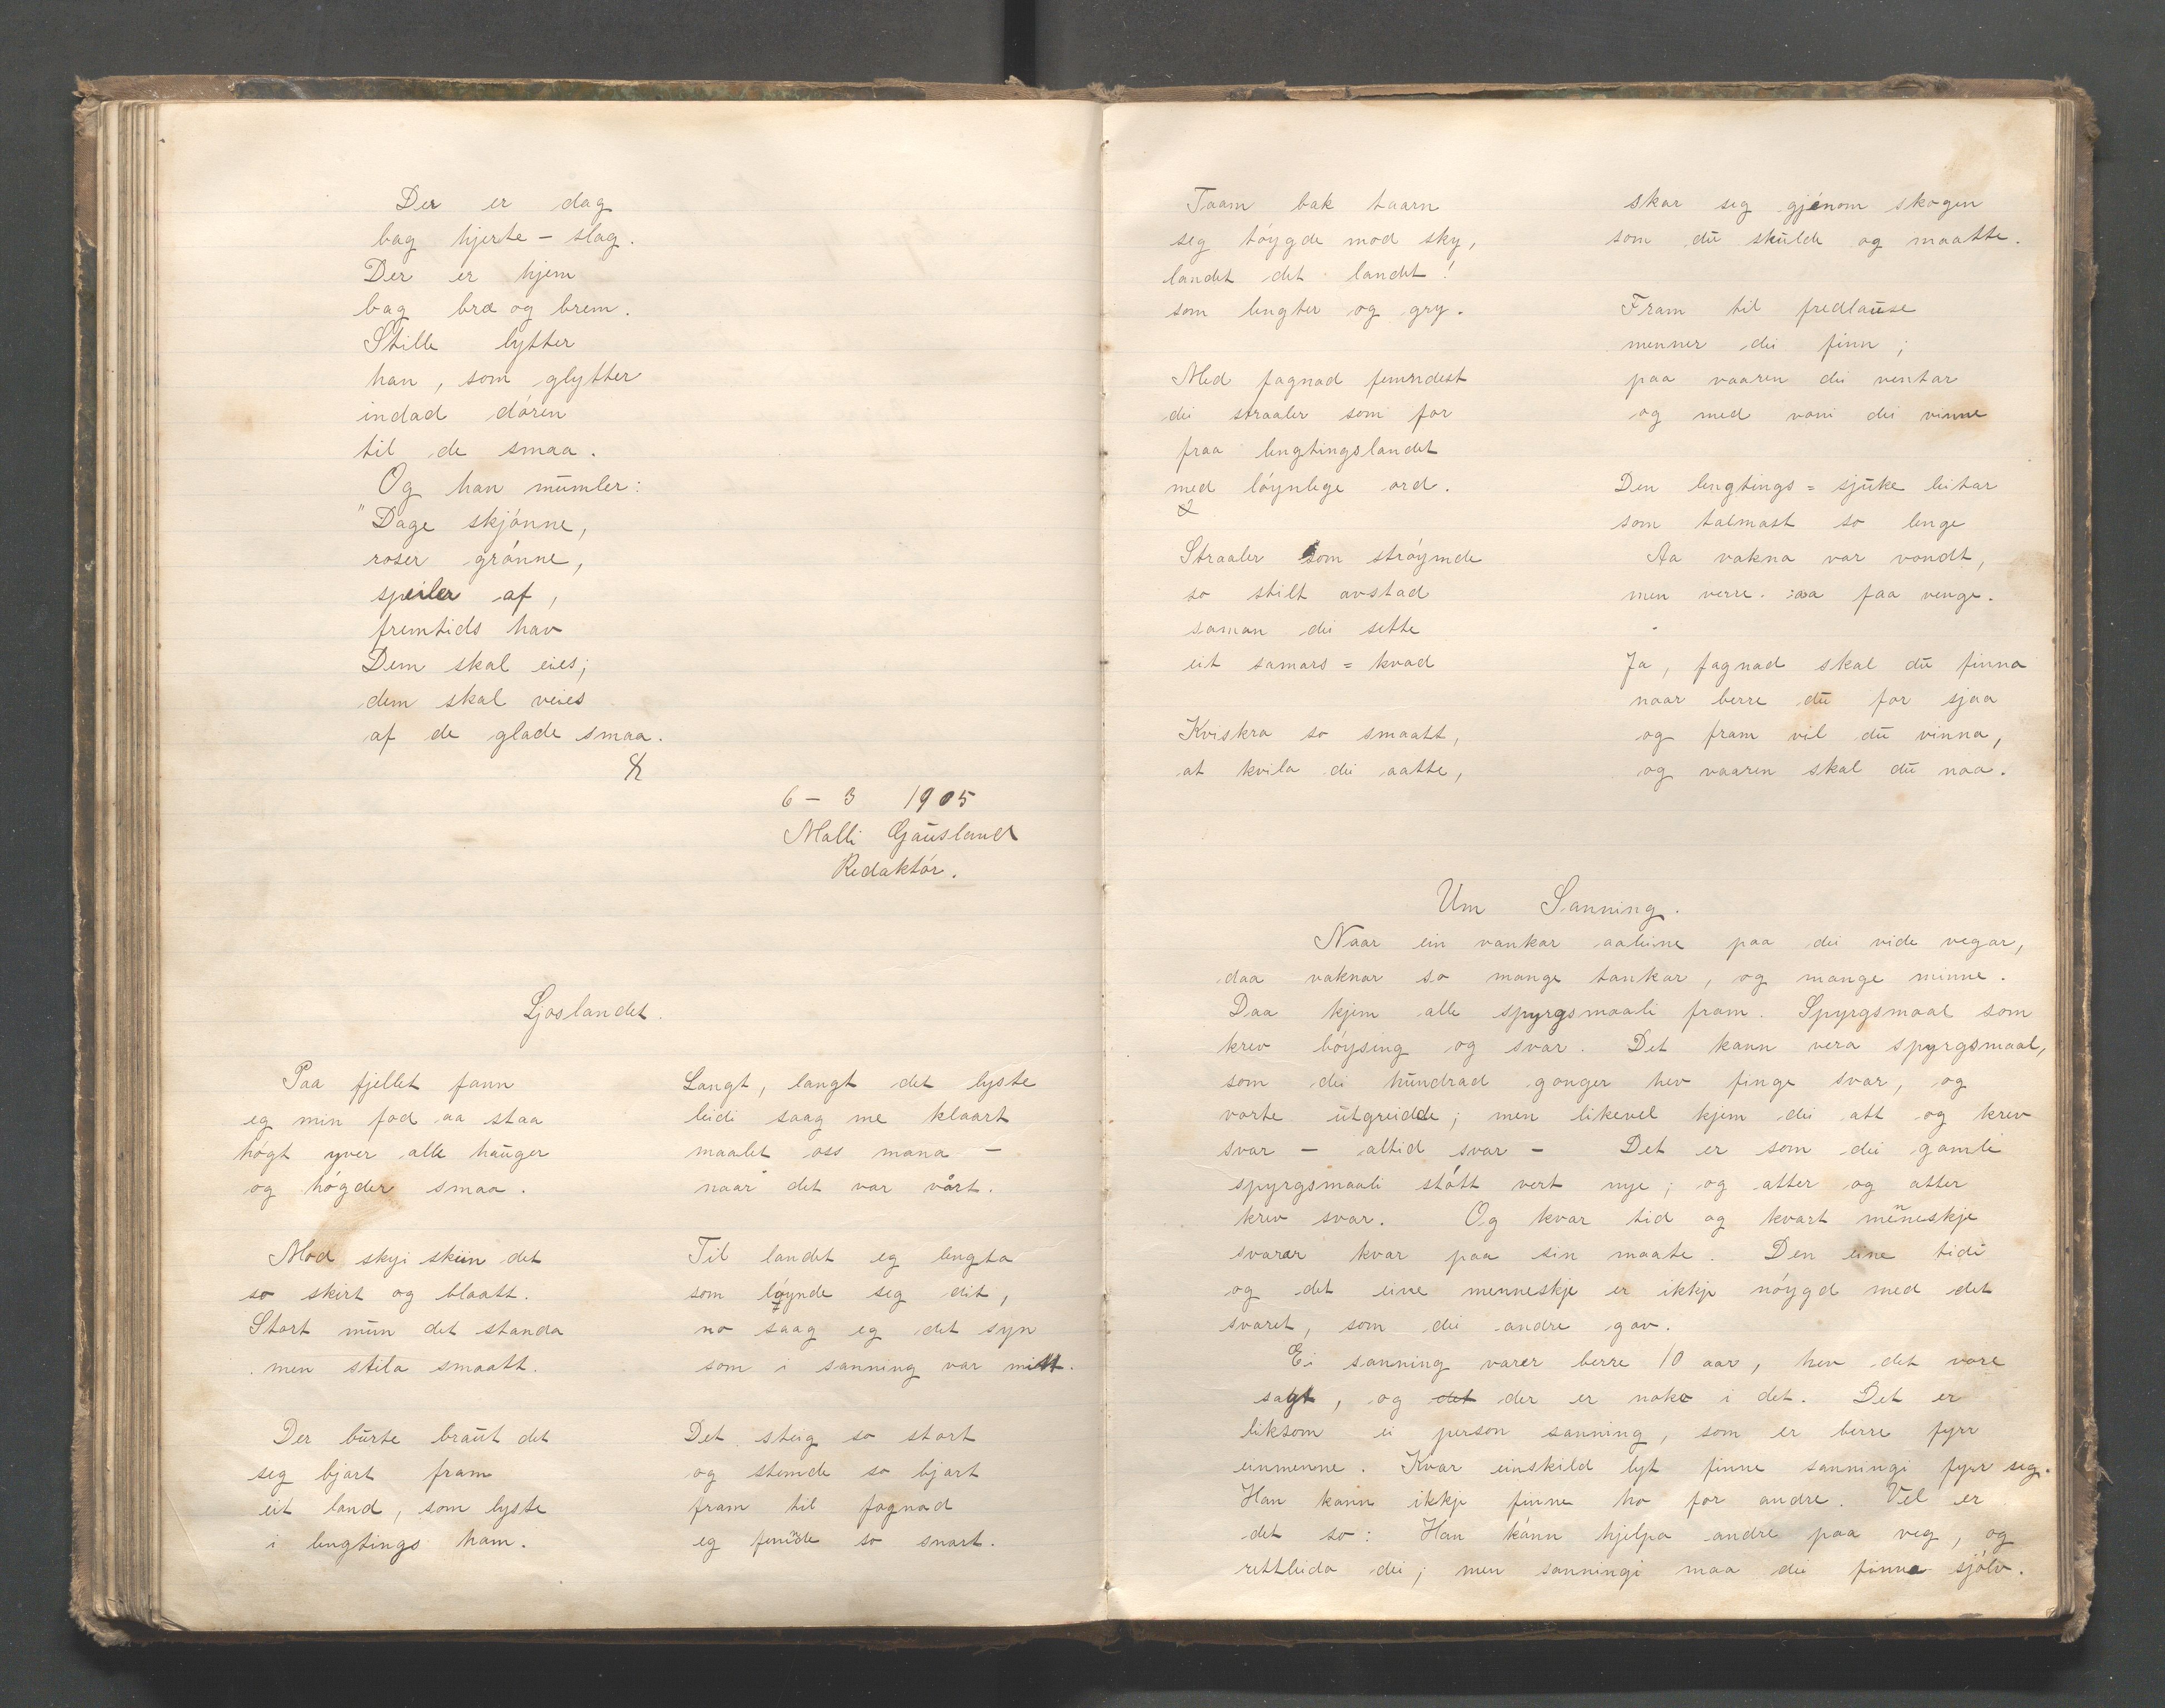 Der er dag
bag hjerte - slag.
Der er hjem
bag bræ og brem.
Stille lytter
han, som glytter
indad dóren
til de smaa.
Og han mumler:
"Dage skjónne,
roser grónne,
speiler af,
fremtids hav
Dem skal eies;
dem skal veies
af de glade smaa.
6 - 3 1905
Malli Gausland
Redaktór.
Ljoslandet.
Paa fjellet fann
eg min fod aa staa
hógt yver alle hauger
og hógder smaa.
Mod skyi skiin det
so skirt og blaatt.
Stort mun det standa
men stila smaatt.
Der burte braut det
seg bjart fram
eit land, som lyste
i lengtings ham.
Langt, langt det lyste
leidi saag me klaart
maalet oss mana -
naar det var vårt.
Til landet eg lengta
som lóynde seg dit,
no saag eg det syn
som i sanning var mitt.
Det steig so stort
og stemde so bjart
fram til fagnad
eg femnde so snart.
Taarn bak taarn
seg tóygde mod sky,
landet det landet!
som lengter og gry.
Med fagnad femndest
dei straaler som for
fraa lengtingslandet
med lóynlege ord.
Straaler som stróymde
so stilt avstad
saman dei sette
eit samars = kvad
Kviskra so smaatt,
at kvila dei aatte,
skar seg gjénom skogen
som du skulde og maatte.
Fram til fredlause
menner dei finn;
paa vaaren dei ventar
og med voni dei vinne
Den lengtings = sjuke leitar
som talmast so lenge
Aa vakna var vondt,
men verre aa faa venge.
Ja, fagnad skal du finna
naar berre du for sjaa
og fram vil du vinna,
og vaaren skal du naa.
Um Sanning.
Naar ein vankar aaleine paa dei vide vegar,
daa vaknar so mange tankar, og mange minne.
Daa kjem alle spyrgsmaali fram. Spyrgsmaal som
krev lóysing og svar. Det kann vera spyrgsmaal,
som dei hundrad gonger hev finge svar, og
vorte utgreidde; men likevel kjem dei att og krev
svar - altid svar - Det er som dei gamle
spyrgsmaali stótt vert nye; og atter og atter
krev svar. Og kvar tid og kvart menneskje
svarar kvar paa sin maate. Den eine tidi
og det eine menneskje er ikkje nóygd med det
svaret, som dei andre gav.
Ei sanning varer berre 10 aar, hev det vore
sagt, og det der er noko i det. Det er
liksom ei person sanning, som er berre fyrr
einmenne. Kvar einskild lyt finne sanningi fyrr seg.
Han kann ikkje finne ho for andre. Vel er
det so: Han kánn hjelpa andre paa veg, og
rettleida dei; men sanningi maa dei finna sjólv.